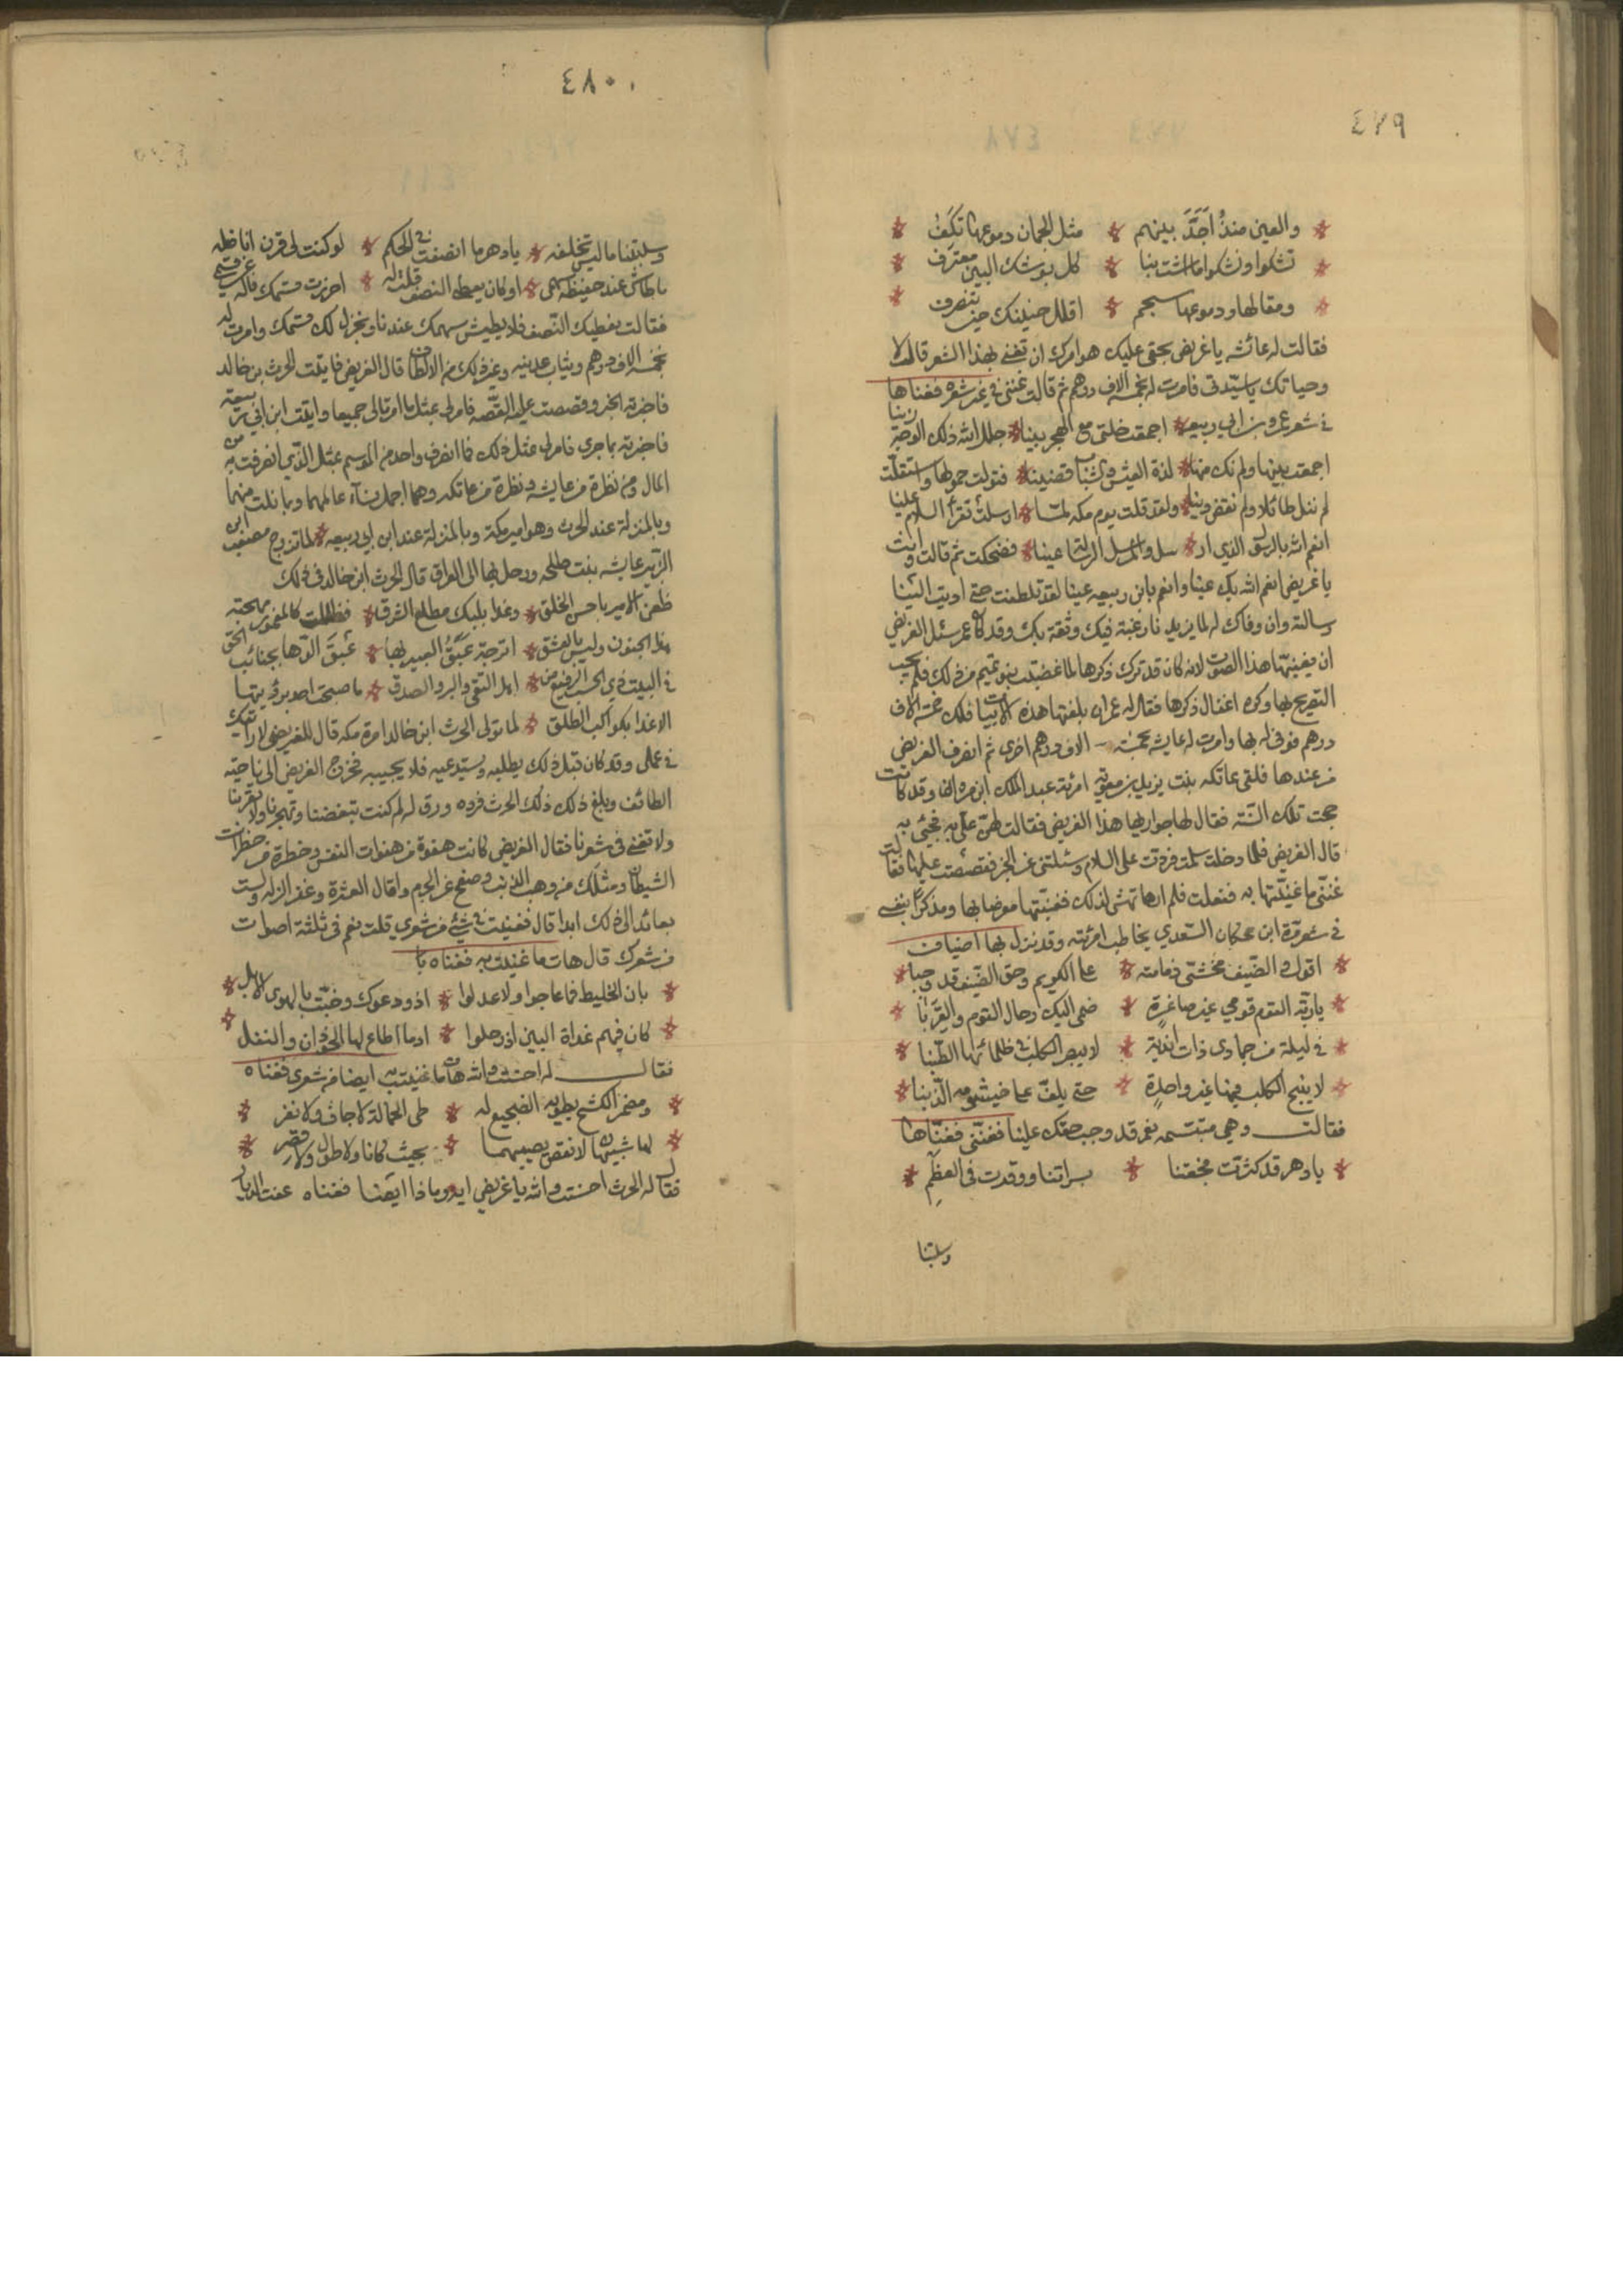 ٤٧٩
والعين منذُ اَجَدَّ بينهم * مثل الجمان دموعها تكِفُ
تشكوا ونشكوا ما اشت بنا * كل بوشك البين معترف
ومقالها ودموعها سجم * اقلل حنينك حين تنصرف
فقالت له عائشه يا غريض بحقى عليك هو امرك ان تغنى بهذا الشعر قال لا
وحياتك يا سيّدتى فامرت له بخمسة الاف درهم ثم قالت غننى فى غير شعره فغناها
فى شعر عمرو بن ابى ربيعه * اجمعت خلتى مع الهجر بينا * جلل الله ذلك الوجه زينا
اجمعت بينها ولم نك منها * لذة العيش والشباب قضينا * فتولت حمولها واستقلّت
لم ننل طائلا ولم نقض دينا * ولقد قلت يوم مكه لمّا * ارسلت تقرأ السلام علينا
انعم الله بالرسول الذي ار * سل والمرسل الرسالة عينا * فضحكت ثم قالت وانت
يا غريض انعم الله بك عينا وانعم بابن ربيعه عينا لقد تلطفت حتى اديت الينا
رسالته وان وفاك له لما يزيدنا رغبة فيك وثقة بك وقد كان عمر سئل الغريض
ان يغنيها هذا الصوت لانه كان قد ترك ذكرها لما غضبت بنو تميم من ذلك فلم يحب
التصريح بها وكره اغفال ذكرها فقال له عمر ان بلغتها هذه الابيات فلك خمسة الاف
درهم فوفى له بها وامرت له عايشه بخمسة الاف درهم اخرى ثم انصرف الغريض
من عندها فلقى عاتكه بنت يزيد بن معويه امرئة عبد الملك ابن مروان وقد كانت
حجت تلك السّنة فقال لها جواريها هذا الغريض فقالت لهنّ علىّ به فجيئ به
قال الغريض فلما دخلت سلمت فردت على السلام وسئلتنى عن الخبر فقصصت عليها فقالت
غننّى ما غنيّتها به ففعلت فلم ارها تهش لذلك فغنيتها معرضا بها ومذكرا بنفسى
فى شعر مرّة ابن محكان السّعدي يخاطب امرئته وقد نزل بها اضياف
اقول والضّيف مخشىّ ذمامته * على الكريم وحق الضّيف قد وجبا
يا ربّة القوم قومي غير صاغرةٍ * ضمى اليك رحال القوم والقِرَبَا
فى ليلة من جمادى ذات اندية * لا يبصر الكلب فى ظلمائها الطّنبا
لا ينبح الكلب فيها غير واحدةٍ * حتى يلفّ على خيشومه الذّنبا
فقالت وهى مبتسمه نعم قد وجب حقك علينا فغننّى فغنّاها
يا دهر قد كثرت فجعتنا * بسراتنا ووقرت فى العظَمِ
وسلبتنا
٤٨٠
وسلبتنا ما ليس تخلفه * يا دهر ما انصفت فى الحكم * لو كنت لى قرن اناضله
ما طاش عند حفيظة سهمى * او كان يعطى النصف قلت له * احرزت قسمك فاله عن قسمى
فقالت نعطيك النّصف فلا يطيش سهمك عندنا ونجزل لك قسمك وامرت له
بخمسة الاف درهم وثياب عدنيه وغير ذلك من الالطاف قال الغريض فاتيت الحرث بن خالد
فاخبرته الخبر وقصصت عليه القصّه فامر لى بمثل ما امرتا لى جميعا واتيت ابن ابى ربيعة
فاخبرته بما جرى فامر لى بمثل ذلك فما انصرف واحد من الموسم بمثل الذي انصرفت به من
المال ومن نظرة من عايشه ونظرة من عاتكه وهما اجمل نساء عالمهما وبما نلت منهما
وبالمنزلة عند الحرث وهو امير مكة وبالمنزلة عند ابن ابى ربيعه * لما تزوج مصعب ابن
الزّبير عايشه بنت طلحه ورحل بها الى العراق قال الحرث ابن خالد فى ذلك
ظعن الامير باحسن الخلق * وغدا بلبك مطلع الشرق * فظللت كالمقمور مهجته
هذا الجنون وليس بالعشق * اترجّة عَبَقَُ العبير بها * عَبَقَ الدّهان بجانب الحق
فى البيت ذي الحسب الرفيع من * اهل التقى والبر والصدق * ما صبحت احدا برؤيتها
الاغدا بكواكب الطلق * لما تولى الحرث ابن خالد امرة مكه قال للغريض لا اراك
فى عملى وقد كان قبل ذلك يطلبه ويستدعيه فلا يجيبه فخرج الغريض الى ناحية
الطائف وبلغ ذلك ذلك الحرث فرده ورق له لم كنت تبغضنا وتهجرنا ولا تقربنا
ولا تغنى فى شعرنا فقال الغريض كانت هفوة من هفوات النفس وخطرة من خطرات
الشيطان ومثلك من وهب الذنب وصفح عن الجرم واقال العثرة وغفر الزله ولست
بعائد الى ذلك ابدا قال فغنيت فى شيئ من شعري قلت نعم فى ثلثة اصوات
من شعرك قال هات ما غنيت به فغناه
بان الخليط فما عاجوا ولا عدلوا * اذ ودعوك وحنّت بالهوى الابل
كان فيهم غداة البين اذ رحلوا * ادما اطاع لها الحوذان والنفل
فقال له احسنت والله هات ما غنيت به ايضا من شعرى فغناه
ومضمر الكشح يطويه الضجيع له * طى الحمالة لا جاف ولا نقر
لها شبيهان لا نقص يعيبهما * بحيث كانا ولا طول ولا قصر
فقال له الحرث احسنت والله يا غريض ايه وماذا ايضا فغناه عفت الديار